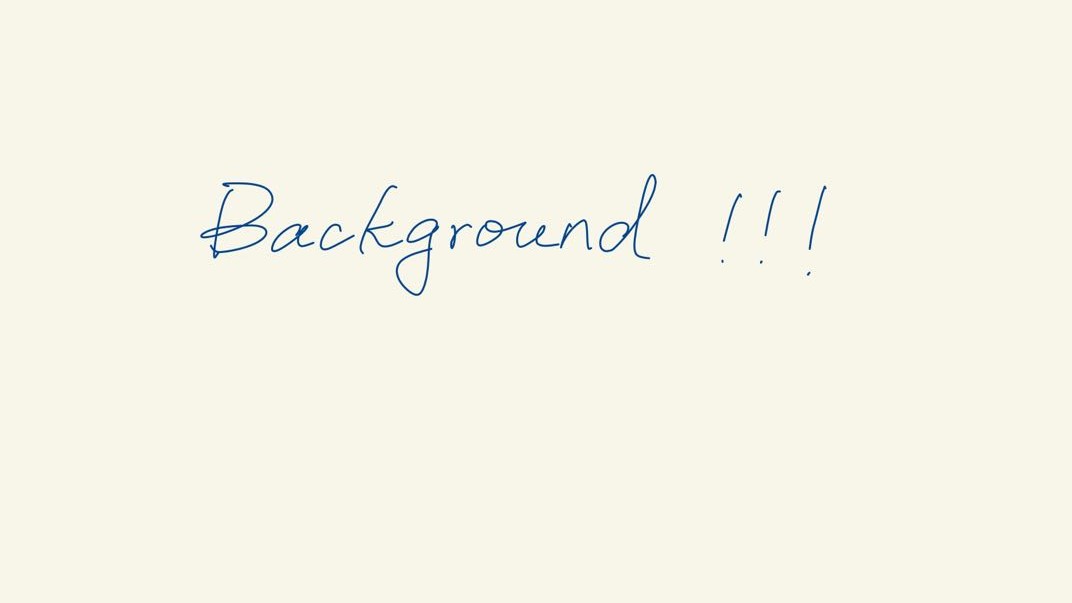 Background !!!